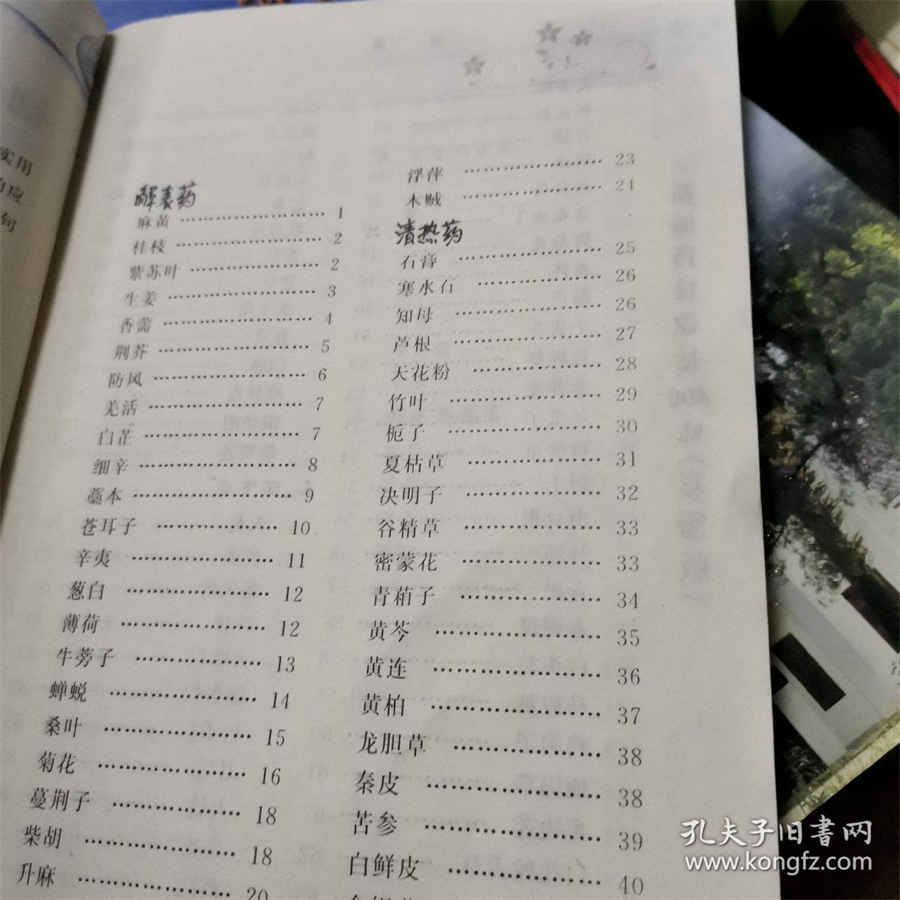 实用
应
句
解表药
麻黄 …… 1
桂枝 …… 2
紫苏叶 …… 2
生姜 …… 3
香薷 …… 4
荆芥 …… 5
防风 …… 6
羌活 …… 7
白芷 …… 7
细辛 …… 8
藁本 …… 9
苍耳子 …… 10
辛夷 …… 11
葱白 …… 12
薄荷 …… 12
牛蒡子 …… 13
蝉蜕 …… 14
桑叶 …… 15
菊花 …… 16
蔓荆子 …… 18
柴胡 …… 18
升麻 …… 20
浮萍 …… 23
木贼 …… 24
清热药
石膏 …… 25
寒水石 …… 26
知母 …… 26
芦根 …… 27
天花粉 …… 28
竹叶 …… 29
栀子 …… 30
夏枯草 …… 31
决明子 …… 32
谷精草 …… 33
密蒙花 …… 33
青葙子 …… 34
黄芩 …… 35
黄连 …… 36
黄柏 …… 37
龙胆草 …… 38
秦皮 …… 38
苦参 …… 39
白鲜皮 …… 40
孔夫子旧书网
www.kongfz.com